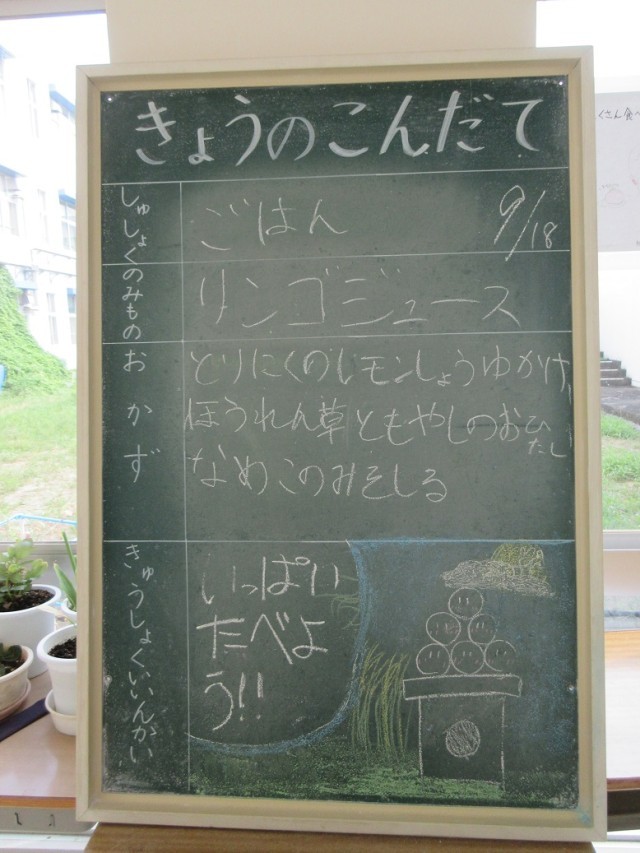 きょうのこんだて
しゅしょく
ごはん
9/18
のみもの
リンゴジュース
おかず
とりにくのレモンしょうゆかけ
ほうれん草ともやしのおひたし
なめこのみそしる
きゅうしょくいいんかい
いっぱい
たべよ
う!!
くさん食べ